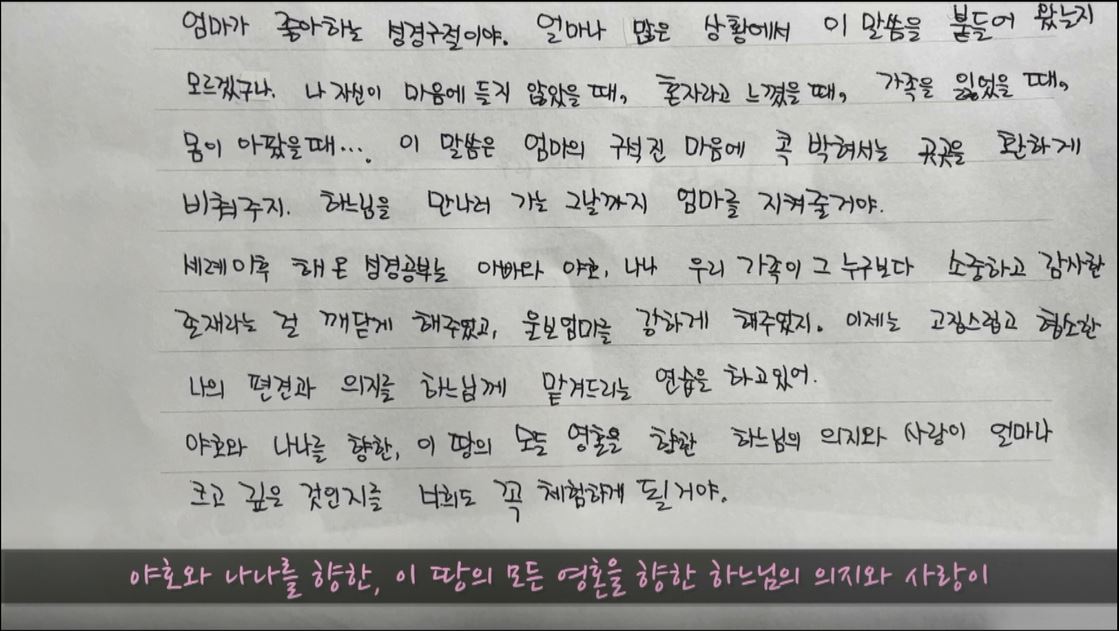 엄마가 좋아하는 성경구절이야. 얼마나 많은 상황에서 이 말씀을 붙들어 왔는지
모르겠구나. 나 자신이 마음에 들지 않았을 때, 혼자라고 느꼈을 때, 가족을 잃었을 때,
몸이 아팠을때... 이 말씀은 엄마의 구석진 마음에 콕 박혀서는 곳곳을 환하게
비춰주지. 하느님을 만나러 가는 그날까지 엄마를 지켜줄거야.
세례이후 해온 성경공부는 아빠와 야호, 나나 우리 가족이 그 누구보다 소중하고 감사한
존재라는 걸 깨닫게 해주었고, 울보엄마를 강하게 해주었지. 이제는 고집스럽고 협소한
나의 편견과 의지를 하느님께 맡겨드리는 연습을 하고있어.
야호와 나나를 향한, 이 땅의 모든 영혼을 향한 하느님의 의지와 사랑이 얼마나
크고 깊은 것인지를 너희도 꼭 체험하게 될거야.
야호와 나나를 향한, 이 땅의 모든 영혼을 향한 하느님의 의지와 사랑이